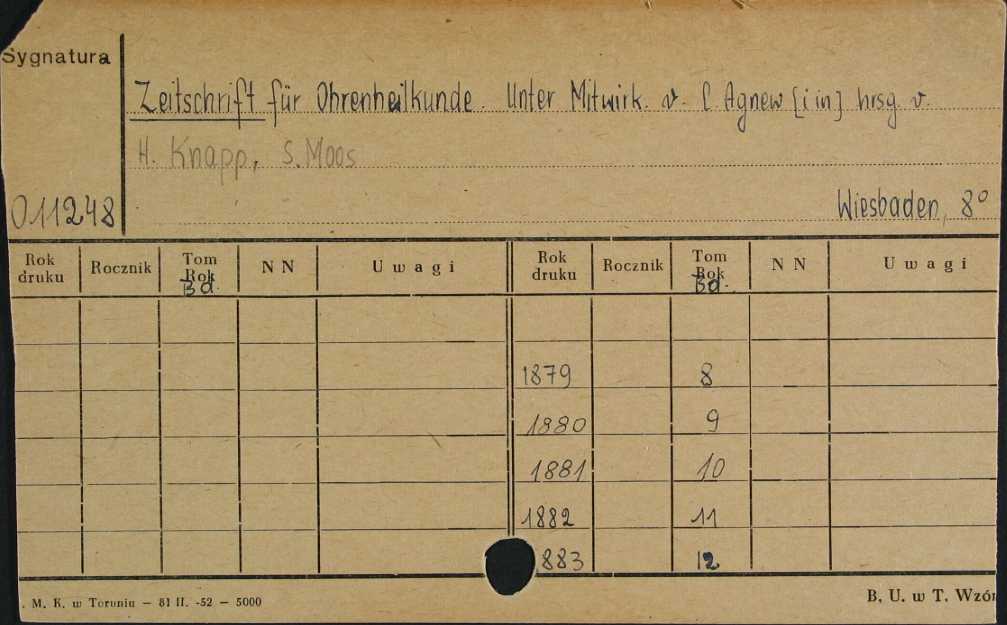 Sygnatura
Zeitschrift für Ohrenheilkunde. Unter Mitwirk. v. C. Agnew [i in] hrsg. v.
H. Knapp, S. Moos
011248
Wiesbaden, 8°
Rok druku Rocznik Tom Rok Bd. N N Uwagi Rok druku Rocznik Tom Rok Bd. N N Uwagi
1879 8
1880 9
1881 10
1882 11
883 12
. M. K. w Toruniu — 81 II. -52 — 5000
B. U. w T. Wzór